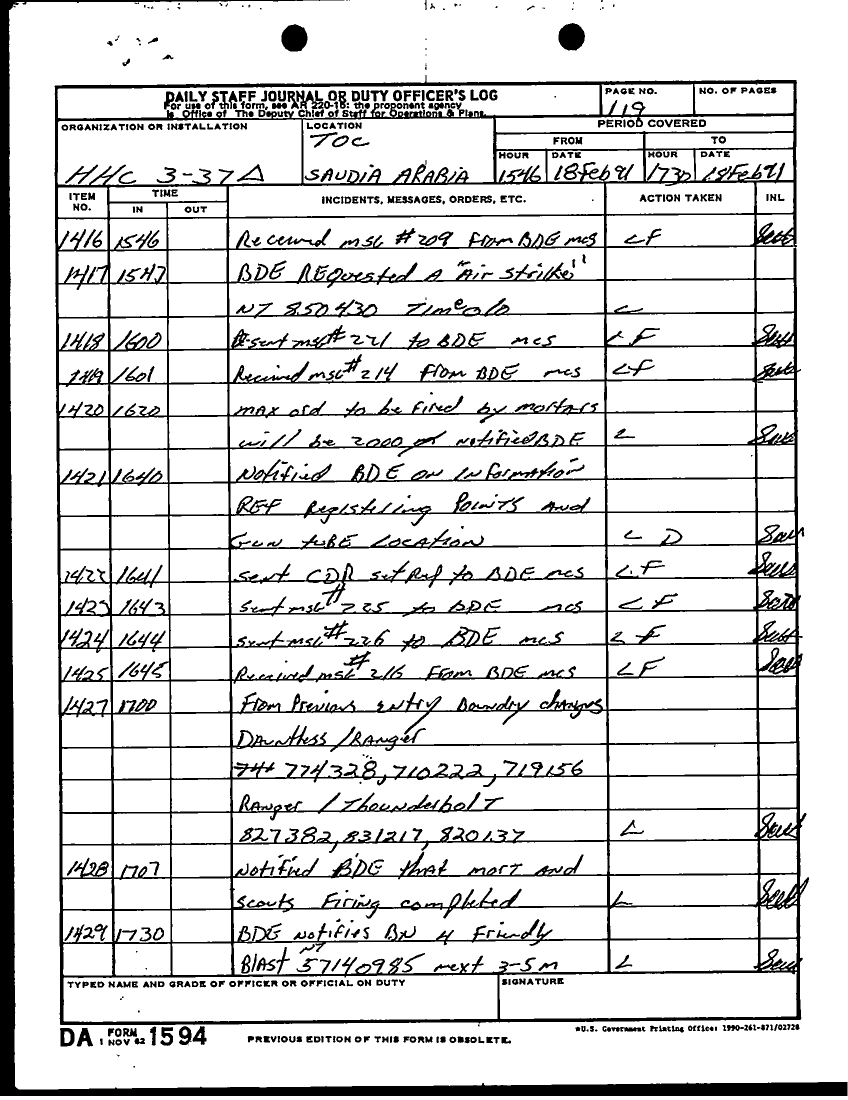 DAILY STAFF JOURNAL OR DUTY OFFICER'S LOG
For use of this form, see AR 220-15; the proponent agency
is Office of The Deputy Chief of Staff for Operations & Plans.
PAGE NO.
119
NO. OF PAGES
ORGANIZATION OR INSTALLATION
HHC 3-37A
LOCATION
TOC
SAUDIA ARABIA
PERIOD COVERED
FROM TO
HOUR DATE HOUR DATE
1546 18Feb91 1730 18Feb91
ITEM NO. TIME IN OUT INCIDENTS, MESSAGES, ORDERS, ETC. ACTION TAKEN INL
1416 1546 Received msg #209 From BDE mcs LF
1417 1547 BDE REQuested A "Air Strike"
NT 850430 L
1418 1600 sent msg# 221 to BDE mcs LF
1419 1601 Received msg# 214 From BDE mcs LF
1420 1620 max ord to be fired by mortars
will be 2000 notified BDE L
1421 1640 Notified BDE on Information
REF Registeling Points and
Gun tuBE Location L D
1422 1641 sent CDR sit Ref to BDE mcs LF
1423 1643 sent msg# 225 to BDE mcs LF
1424 1644 sent msg# 226 to BDE mcs LF
1425 1645 Received msg# 216 From BDE mcs LF
1427 1700 From Previous entry Boundry changes
Dauntless / Ranger
774328, 710222, 719156
Ranger / Thounderbolt
827382, 831217, 820137 L
1428 1707 Notified BDE that mort and
scouts Firing completed L
1429 1730 BDE Notifies BN 4 Friendly
Blast NT 57140985 next 3-5 m L
TYPED NAME AND GRADE OF OFFICER OR OFFICIAL ON DUTY SIGNATURE
DA FORM 1 NOV 62 1594 PREVIOUS EDITION OF THIS FORM IS OBSOLETE.
*U.S. Government Printing Office: 1990-261-871/02728